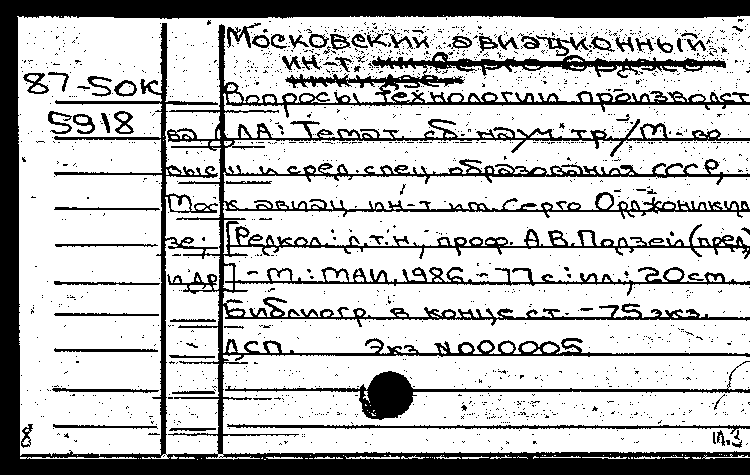 Московский авиационный
ин-т. им. Серго Орджо
никидзе
87-50К
Вопросы технологии производст
5918
ва ДЛА: Темат. сб. науч. тр. / М-во
высш. и сред. спец. образования СССР,
Моск. авиац. ин-т им. Серго Орджоникид
зе; [Редкол.: д.т.н., проф. А.В. Подзей (пред)
и др.] - М.: МАИ, 1986. - 77 с.: ил.; 20 см.
Библиогр. в конце ст. - 75 экз.
ДСП. Экз N000005
8